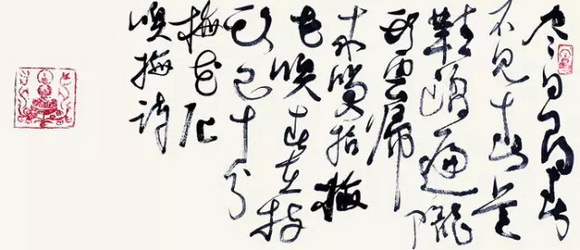 尽日寻春
不见春芒
鞋踏遍陇
头雲归
来笑拈梅
花嗅春在枝
头已十分
梅花尼
嗅梅诗